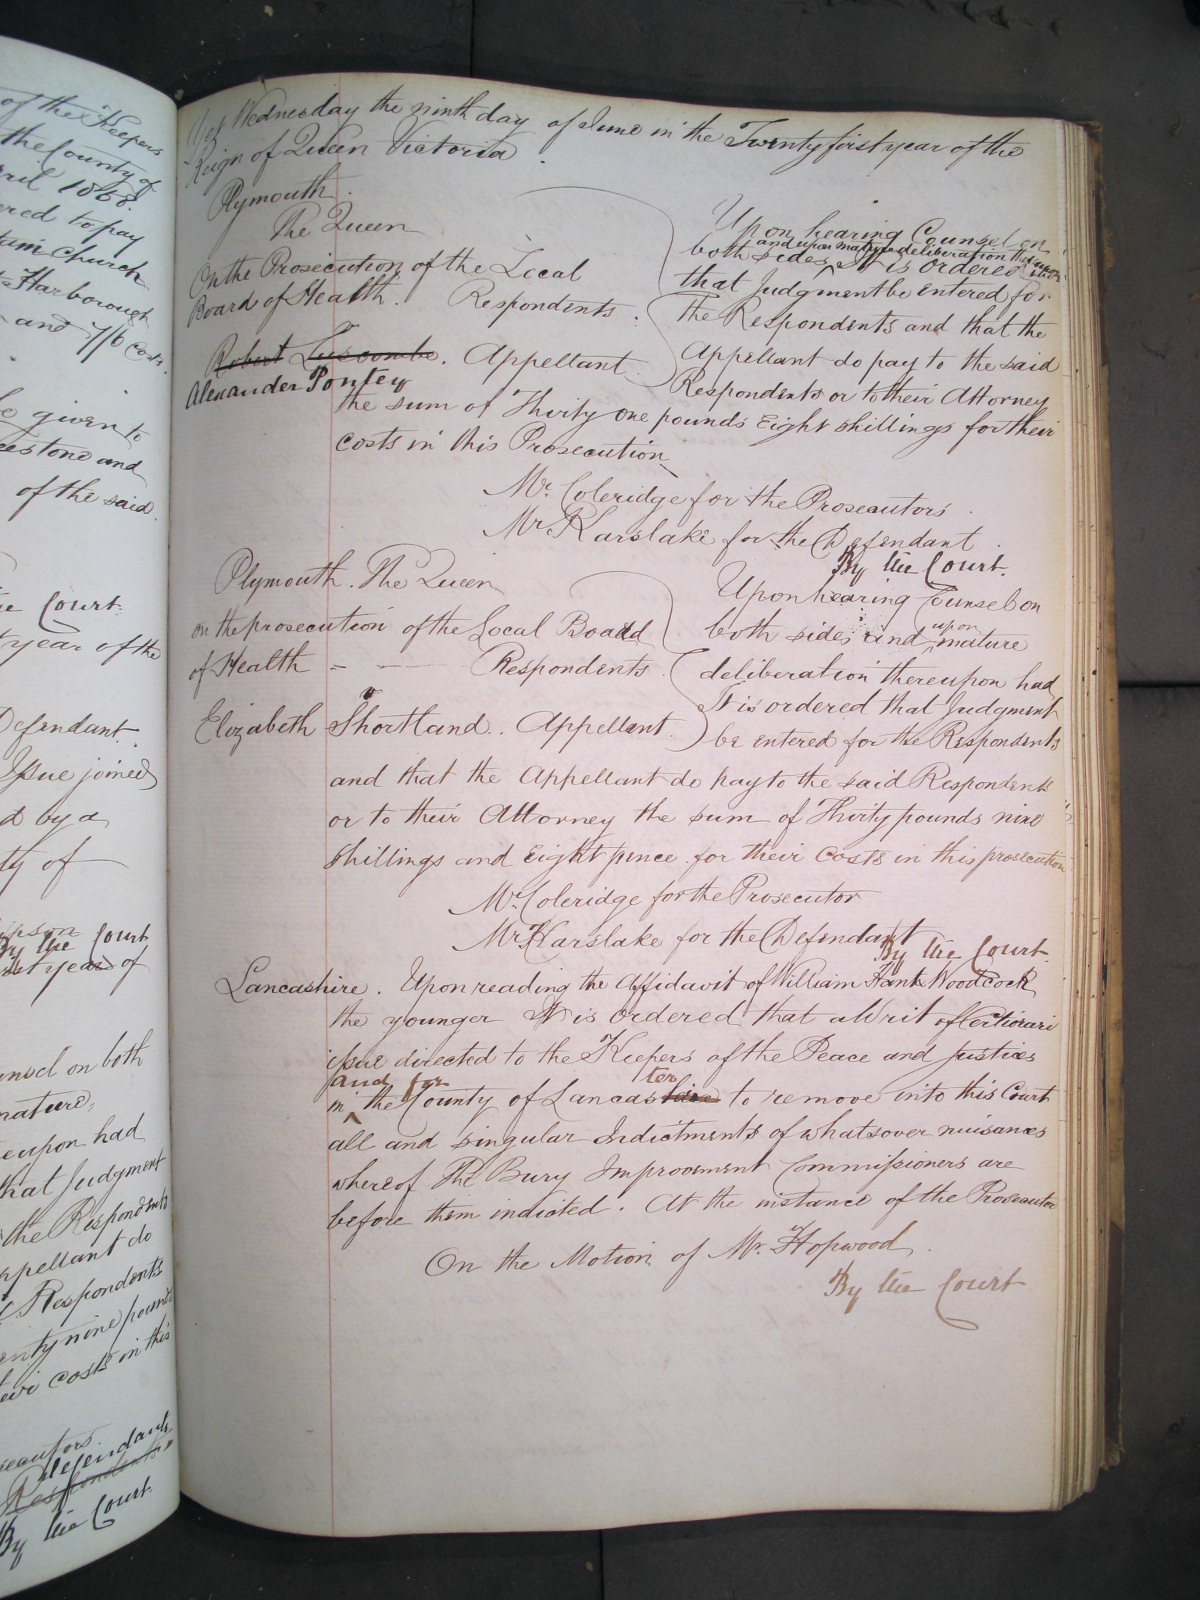 of the Keepers
the County of
ril 1858.
ered to pay
tain Church
Harborough
and 7/6 costs.
given to
estone and
of the said.
Court.
year of the
Defendant
Issue joined
d by a
ty of
By the Court
year of
unsel on both
mature
eupon had
that Judgment
the Respondents
ppellant do
Respondents
enty nine pounds
eir costs in this
secutors.
Defendants
Respondents
By the Court.
Yet Wednesday the ninth day of June in the Twenty first year of the
Reign of Queen Victoria
Plymouth.
The Queen
On the Prosecution of the Local
Board of Health. Respondents.
Robert Luscombe. Appellant
Alexander Pontey
Upon hearing Counsel on
and upon mature deliberation thereupon
both sides It is ordered
that Judgment be entered for
the Respondents and that the
Appellant do pay to the said
Respondents or to their Attorney
the sum of Thirty one pounds Eight shillings for their
costs in this Prosecution
Mr. Coleridge for the Prosecutors.
Mr Karslake for the Defendant.
By the Court.
Plymouth. The Queen
on the prosecution of the Local Board
of Health - - Respondents.
Elizabeth Shortland. Appellant
Upon hearing Counsel on
both sides and upon mature
deliberation thereupon had
It is ordered that Judgment
be entered for the Respondents
and that the Appellant do pay to the said Respondents
or to their Attorney the sum of Thirty pounds nine
shillings and Eight pence for their costs in this prosecution
Mr. Coleridge for the Prosecutor
Mr Karslake for the Defendant
By the Court.
Lancashire. Upon reading the Affidavit of William Hank Woodcock
the younger It is ordered that a Writ of Certiorari
issue directed to the Keepers of the Peace and Justices
and for ter
in the County of Lancashire to remove into this Court
all and singular Indictments of whatsover nuisances
whereof The Bury Improvement Commissioners are
before them indicted. At the instance of the Prosecutor
On the Motion of Mr. Hopwood.
By the Court